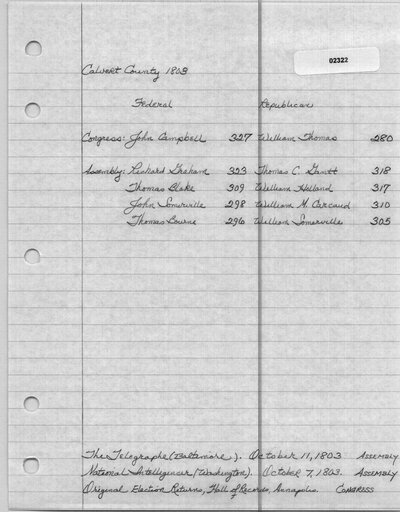 02322
Calvert County 1803
Federal Republican
Congress: John Campbell 327 William Thomas 280
Assembly: Richard Graham 323 Thomas C. Gantt 318
Thomas Blake 309 William Holland 317
John Somerville 298 William M. Carcaud 310
Thomas Bourne 296 William Somerville 305
The Telegraphe (Baltimore). October 11, 1803 ASSEMBLY
National Intelligencer (Washington). October 7, 1803. ASSEMBLY
Original Election Returns, Hall of Records, Annapolis. CONGRESS